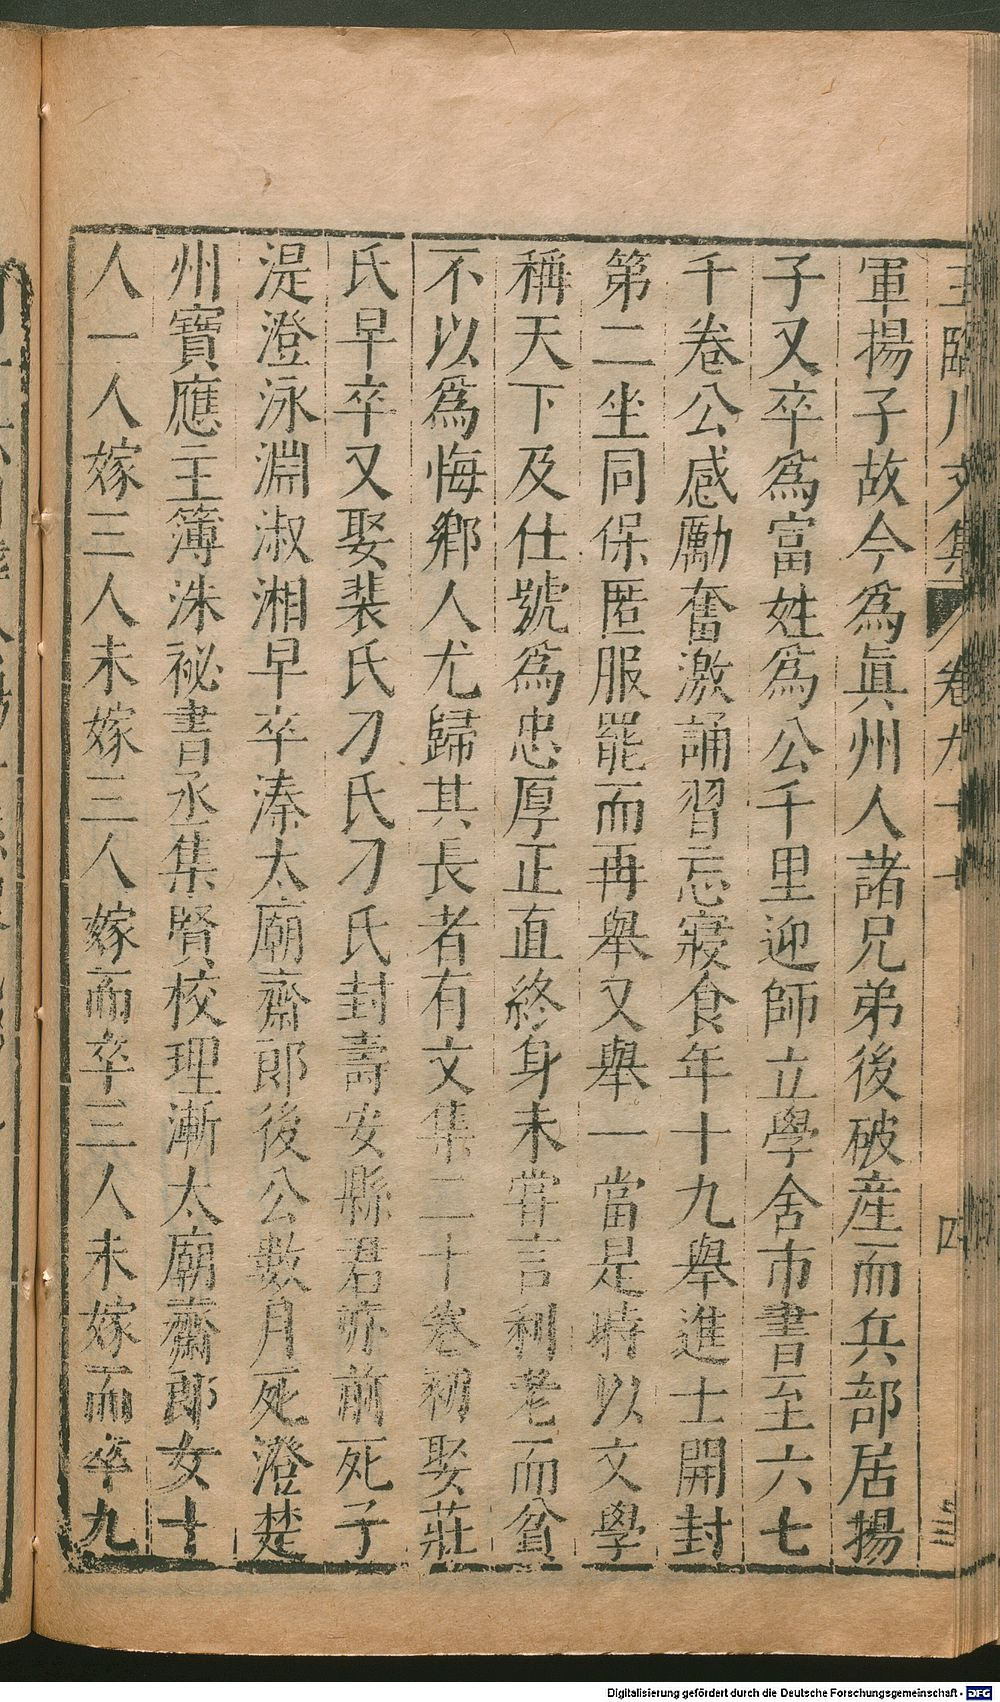 王臨川文集 卷九十 四
軍揚子故今爲眞州人諸兄弟後破產而兵部居揚
子又卒爲富姓爲公千里迎師立學舍市書至六七
千卷公感勵奮激誦習忘寢食年十九舉進士開封
第二坐同保匿服罷而再舉又舉一當是時以文學
稱天下及仕號爲忠厚正直終身未嘗言利老而貧
不以爲悔鄉人尤歸其長者有文集二十卷初娶莊
氏早卒又娶裴氏刁氏刁氏封壽安縣君亦前死子
湜澄泳淵淑湘早卒溱太廟齋郎後公數月死澄楚
州寶應主簿洙祕書丞集賢校理漸太廟齋郎女十
人一人嫁三人未嫁三人嫁而卒三人未嫁而卒九
Digitalisierung gefördert durch die Deutsche Forschungsgemeinschaft - DFG